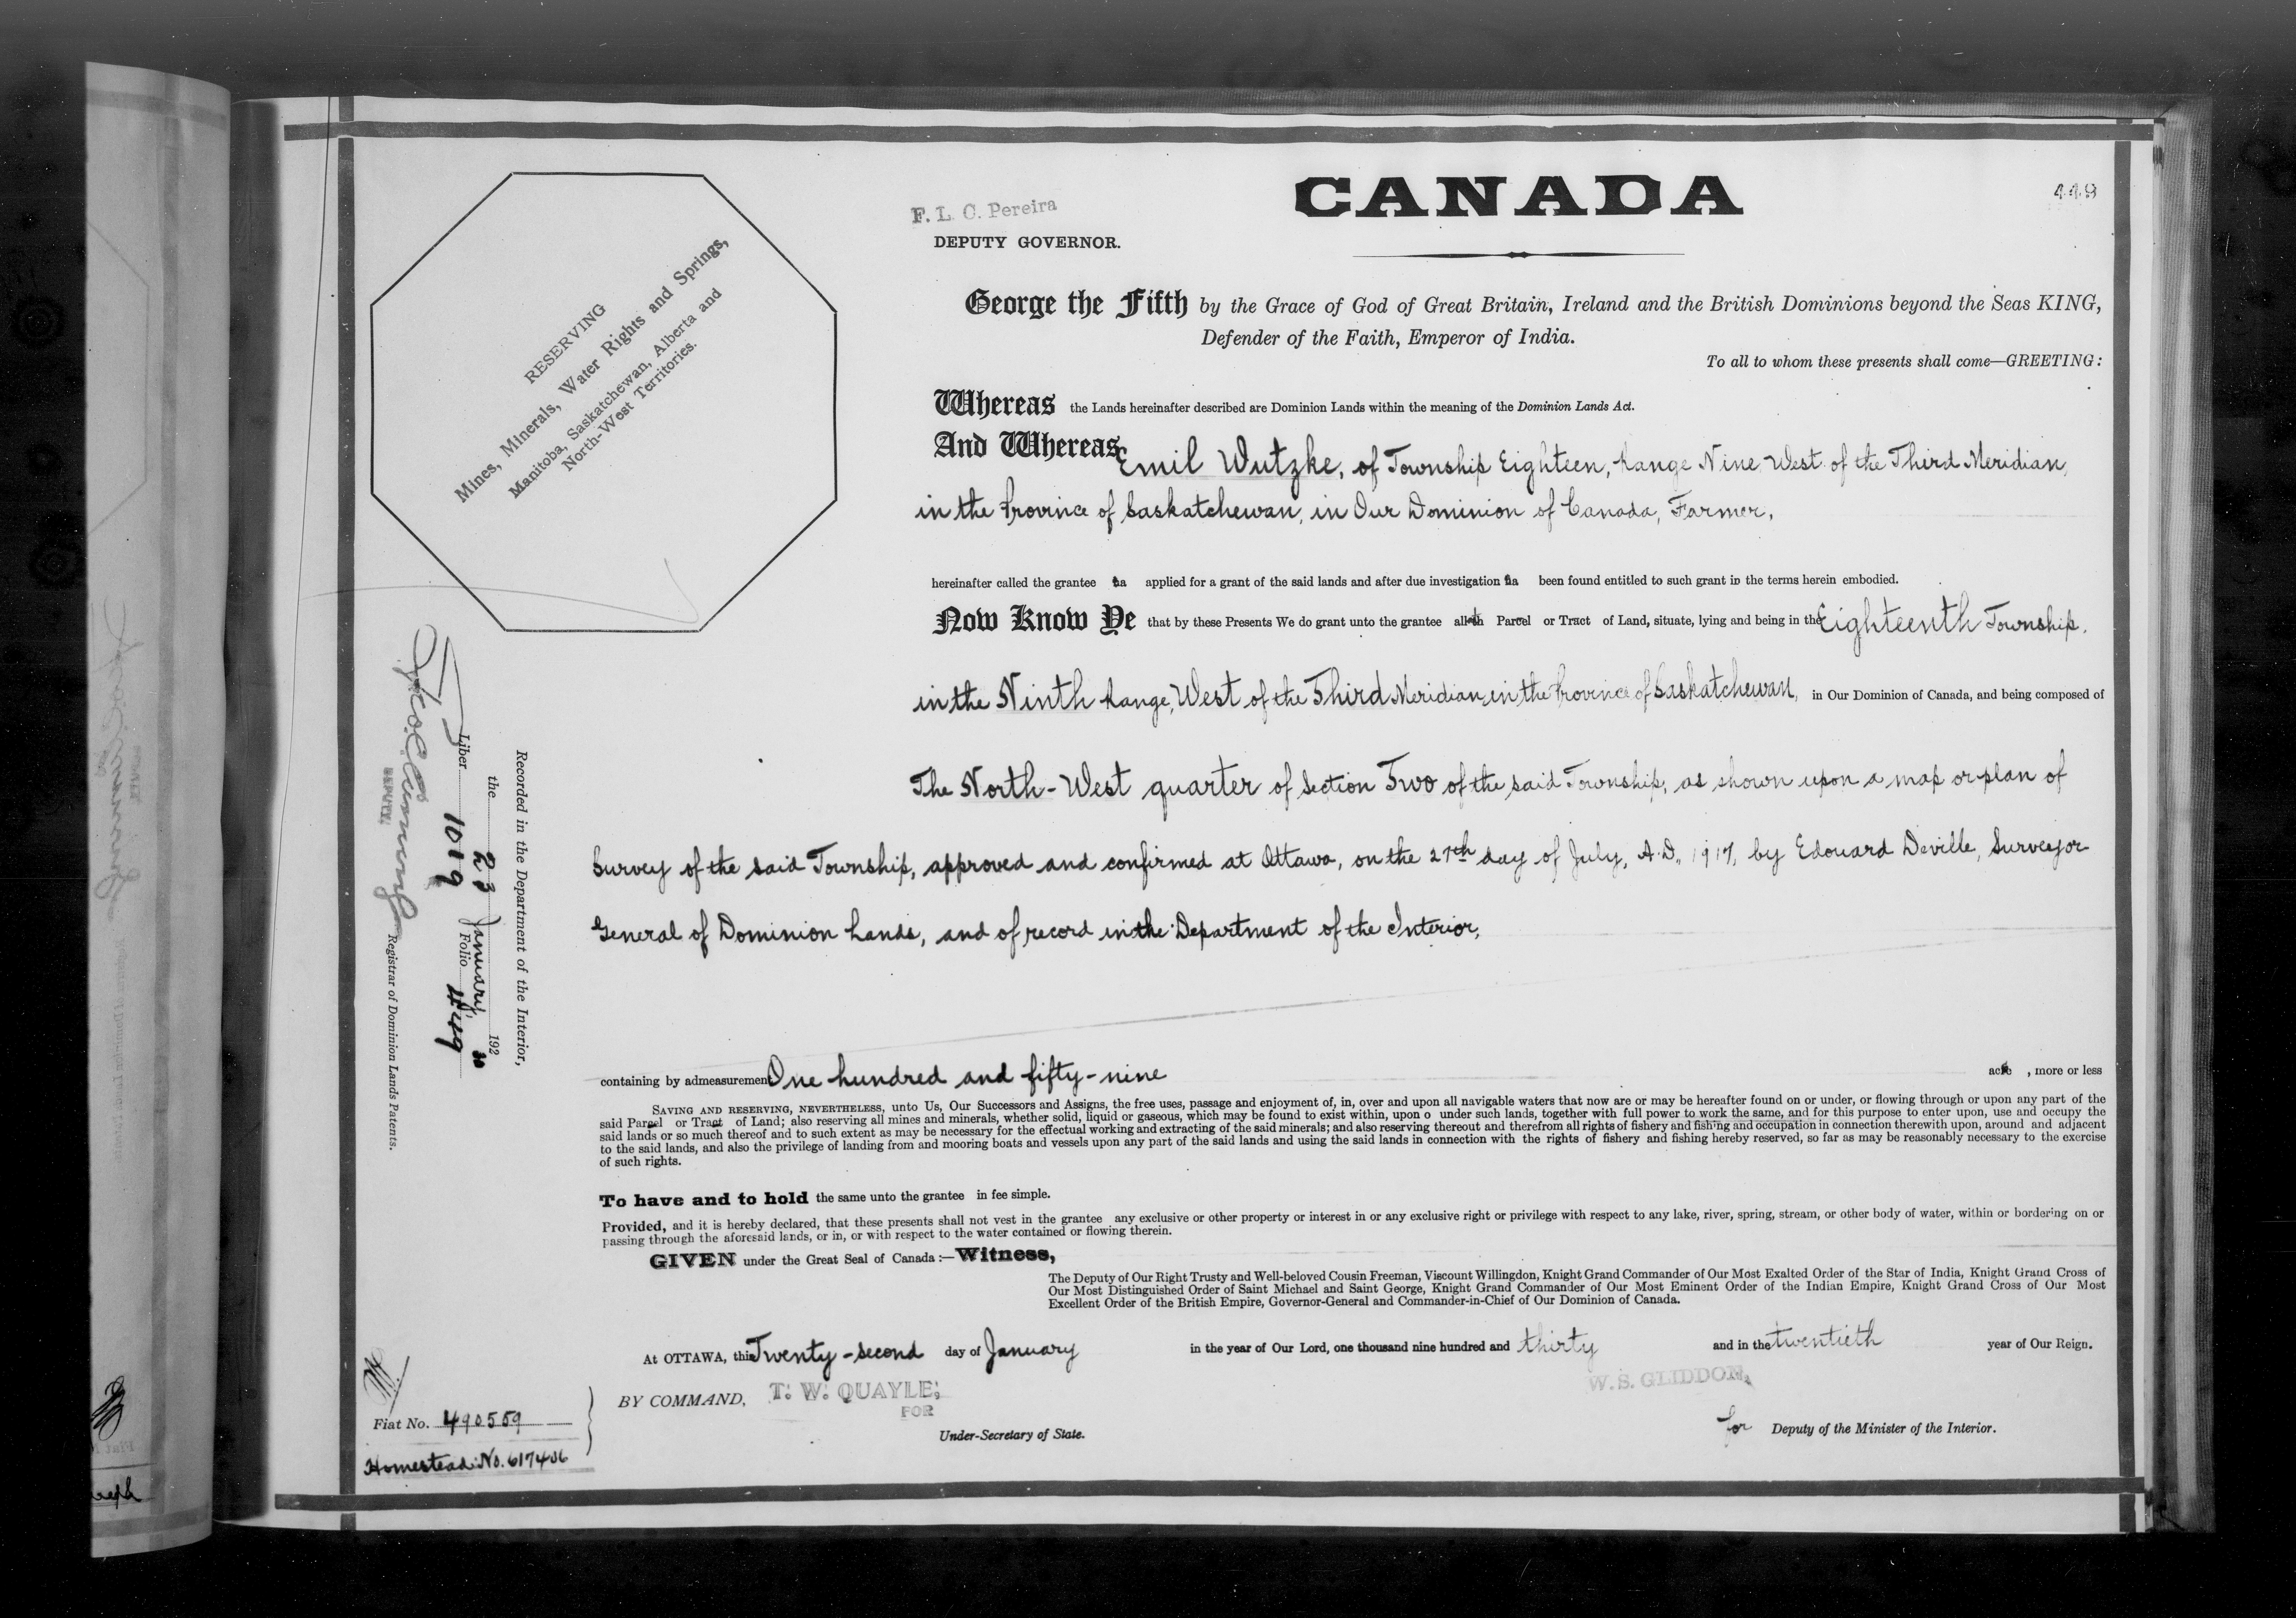 CANADA
449
F. L. C. Pereira
DEPUTY GOVERNOR.
RESERVING
Mines, Minerals, Water Rights and Springs,
Manitoba, Saskatchewan, Alberta and
North-West Territories.
George the Fifth by the Grace of God of Great Britain, Ireland and the British Dominions beyond the Seas KING,
Defender of the Faith, Emperor of India.
To all to whom these presents shall come—GREETING:
Whereas the Lands hereinafter described are Dominion Lands within the meaning of the Dominion Lands Act.
And Whereas Emil Wutzke, of Township Eighteen, Range Nine West of the Third Meridian,
in the Province of Saskatchewan, in Our Dominion of Canada, Farmer,
hereinafter called the grantee ha applied for a grant of the said lands and after due investigation ha been found entitled to such grant in the terms herein embodied.
Now Know Ye that by these Presents We do grant unto the grantee all th Parcel or Tract of Land, situate, lying and being in the Eighteenth Township,
in the Ninth Range, West of the Third Meridian, in the Province of Saskatchewan, in Our Dominion of Canada, and being composed of
The North-West quarter of Section Two of the said Township, as shown upon a map or plan of
Survey of the said Township, approved and confirmed at Ottawa, on the 27th day of July, A.D., 1917, by Edouard Deville, Surveyor
General of Dominion Lands, and of record in the Department of the Interior,
containing by admeasurement One hundred and fifty-nine acre , more or less
SAVING AND RESERVING, NEVERTHELESS, unto Us, Our Successors and Assigns, the free uses, passage and enjoyment of, in, over and upon all navigable waters that now are or may be hereafter found on or under, or flowing through or upon any part of the
said Parcel or Tract of Land; also reserving all mines and minerals, whether solid, liquid or gaseous, which may be found to exist within, upon o under such lands, together with full power to work the same, and for this purpose to enter upon, use and occupy the
said lands or so much thereof and to such extent as may be necessary for the effectual working and extracting of the said minerals; and also reserving thereout and therefrom all rights of fishery and fishing and occupation in connection therewith upon, around and adjacent
to the said lands, and also the privilege of landing from and mooring boats and vessels upon any part of the said lands and using the said lands in connection with the rights of fishery and fishing hereby reserved, so far as may be reasonably necessary to the exercise
of such rights.
To have and to hold the same unto the grantee in fee simple.
Provided, and it is hereby declared, that these presents shall not vest in the grantee any exclusive or other property or interest in or any exclusive right or privilege with respect to any lake, river, spring, stream, or other body of water, within or bordering on or
passing through the aforesaid lands, or in, or with respect to the water contained or flowing therein.
GIVEN under the Great Seal of Canada :—Witness,
The Deputy of Our Right Trusty and Well-beloved Cousin Freeman, Viscount Willingdon, Knight Grand Commander of Our Most Exalted Order of the Star of India, Knight Grand Cross of
Our Most Distinguished Order of Saint Michael and Saint George, Knight Grand Commander of Our Most Eminent Order of the Indian Empire, Knight Grand Cross of Our Most
Excellent Order of the British Empire, Governor-General and Commander-in-Chief of Our Dominion of Canada.
At OTTAWA, this Twenty-second day of January in the year of Our Lord, one thousand nine hundred and thirty and in the twentieth year of Our Reign.
BY COMMAND, T. W. QUAYLE,
FOR
Under-Secretary of State.
W.S. GLIDDON,
for Deputy of the Minister of the Interior.
Recorded in the Department of the Interior,
the 23 January, 192 30
Liber 1019 Folio 449
DEPUTY
Registrar of Dominion Lands Patents.
Fiat No. 490559
Homestead No. 617406